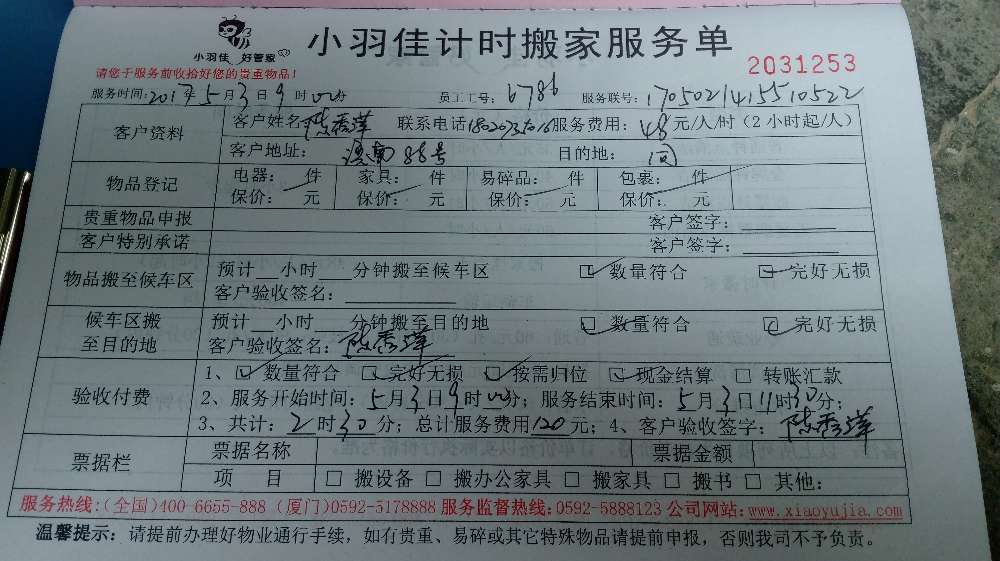 小羽佳 好管家
小羽佳计时搬家服务单
2031253
请您于服务前收拾好您的贵重物品!
服务时间:2017年5月3日9时00分 员工工号:6786 服务联号:17050214155510522
客户资料
客户姓名 联系电话 服务费用:48元/人/时(2小时起/人)
客户地址: 88号 目的地:同
物品登记
电器: 件 家具: 件 易碎品: 件 包裹: 件
保价: 元 保价: 元 保价: 元 保价: 元
贵重物品申报 客户签字:
客户特别承诺 客户签字:
物品搬至候车区
预计__小时___分钟搬至候车区 ☑数量符合 ☑完好无损
客户验收签名:
候车区搬至目的地
预计__小时___分钟搬至目的地 ☑数量符合 ☑完好无损
客户验收签名:
验收付费
1、☑数量符合 ☑完好无损 ☑按需归位 ☑现金结算 □转账汇款
2、服务开始时间:5月3日9时00分;服务结束时间:5月3日11时30分;
3、共计:2时30分;总计服务费用120元;4、客户验收签字:
票据栏
票据名称 票据金额
项 目 □搬设备 □搬办公家具 □搬家具 □搬书 □其他:
服务热线:(全国)400-6655-888 (厦门)0592-5178888 服务监督热线:0592-5888123 公司网站:www.xiaoyujia.com
温馨提示:请提前办理好物业通行手续,如有贵重、易碎或其它特殊物品请提前申报,否则我司不予负责。